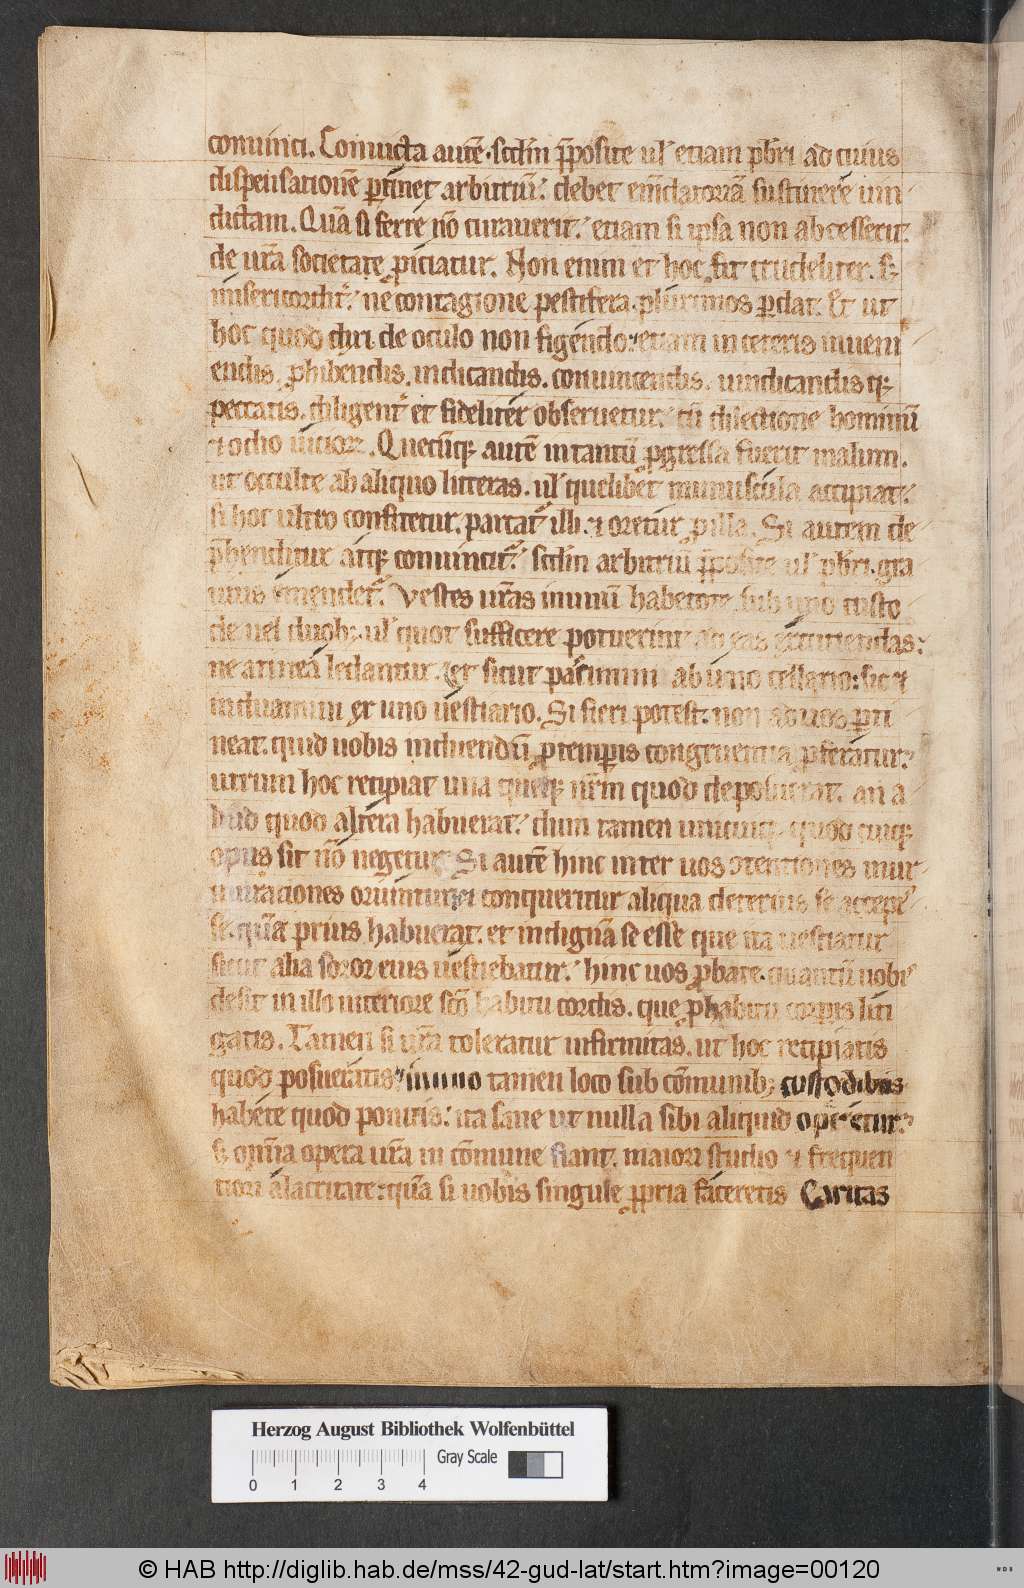 conuinci. Conuicta autē. scd̄m p̄posite ul' etiam pb̄ri ad cuius
dispensationē ꝑtinet arbitriū: debet em̄datoriā sustinere uin
dictam. Quā si ferre nō curauerit: etiam si ipsa non abcesserit.
de ur̄a societate ꝓiciatur. Non enim et hoc fit crudeliter. s;
misericordit̄: ne contagione pestifera. plurimos ꝑdat. Et ut
hoc quod dixi de oculo non figendo: etiam in ceteris inueni
endis. ꝓhibendis. indicandis. conuincendis. uindicandisq;
peccatis. diligent̄ et fideliter obseruetur. cū dilectione hominū
⁊ odio uicior̄. Quecūq; autē in tantū ꝓgressa fuerit malum.
ut occulte ab aliquo litteras. ul' quelibet munuscula accipiat.
si hoc ultro confitetur. parcat᷑ illi. ⁊ oretur ꝓ illa. Si autem de
p̄henditur atq; conuincit᷑: scd̄m arbitriū p̄posite ul' pb̄ri. gra
uius emendet᷑. Vestes ur̄as in unū habetote. sub uno custo
de uel duob; ul' quot sufficere potuerint ad eas excutiendas:
ne a tinea ledantur. Et sicut pascimini ab uno cellario: sic ⁊
induamini ex uno uestiario. Si fieri potest. non ad uos ꝑti
neat. quid uobis induendū ꝓ temp̄is congruentia ꝓferatur:
utrum hoc recipiat una queq; ur̄m quod deposuerat. an a
liud quod altera habuerat: dum tamen unicuiq; quod cuiq;
opus sit nō negetur. Si autē hinc inter uos ↄtentiones mur
murationes oriuntur. et conqueritur aliqua deterius se accepi
se. quā prius habuerat. et indignā se esse que ita uestiatur
sicut alia soror eius uestiebatur: hinc uos ꝓbate. quantū uobis
desit in illo interiore sc̄o habitu cordis. que ꝓ habitu corꝑis liti
gatis. Tamen si ur̄a toleratur infirmitas. ut hoc recipiatis
quod posueratis: in uno tamen loco sub cōmunib; custodibus
habete quod ponitis: ita sane ut nulla sibi aliquid operetur:
s; om̄ia opera ur̄a in cōmune fiant. maiori studio ⁊ frequen
tiori alacritate: quā si uobis singule ꝓpria faceretis Caritas
Herzog August Bibliothek Wolfenbüttel
Gray Scale
0 1 2 3 4
© HAB http://diglib.hab.de/mss/42-gud-lat/start.htm?image=00120